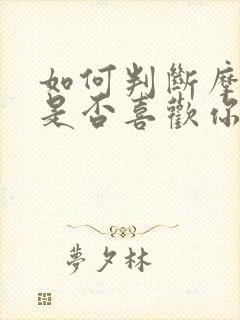 如何判斷摩
是否喜歡你
夢夕林